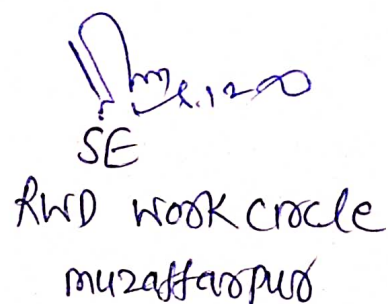 SE
RWD Work Circle
muzaffarpur